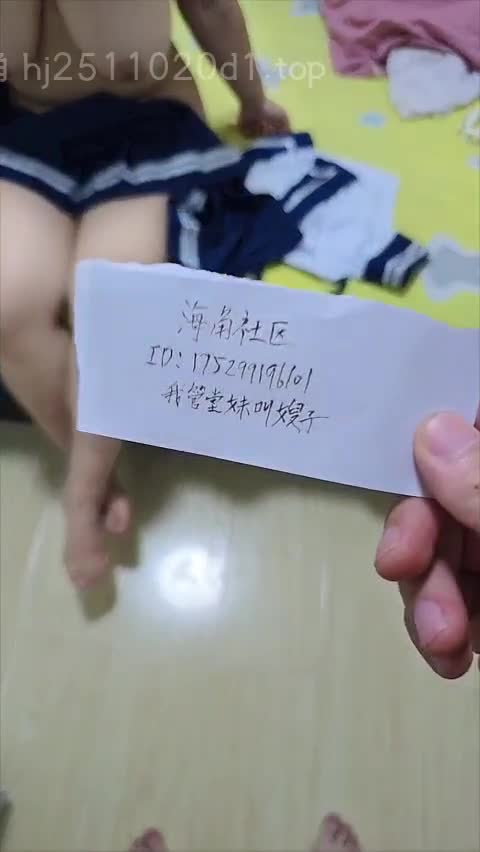 hj2511020d1.top
海角社区
ID:
我管堂妹叫嫂子